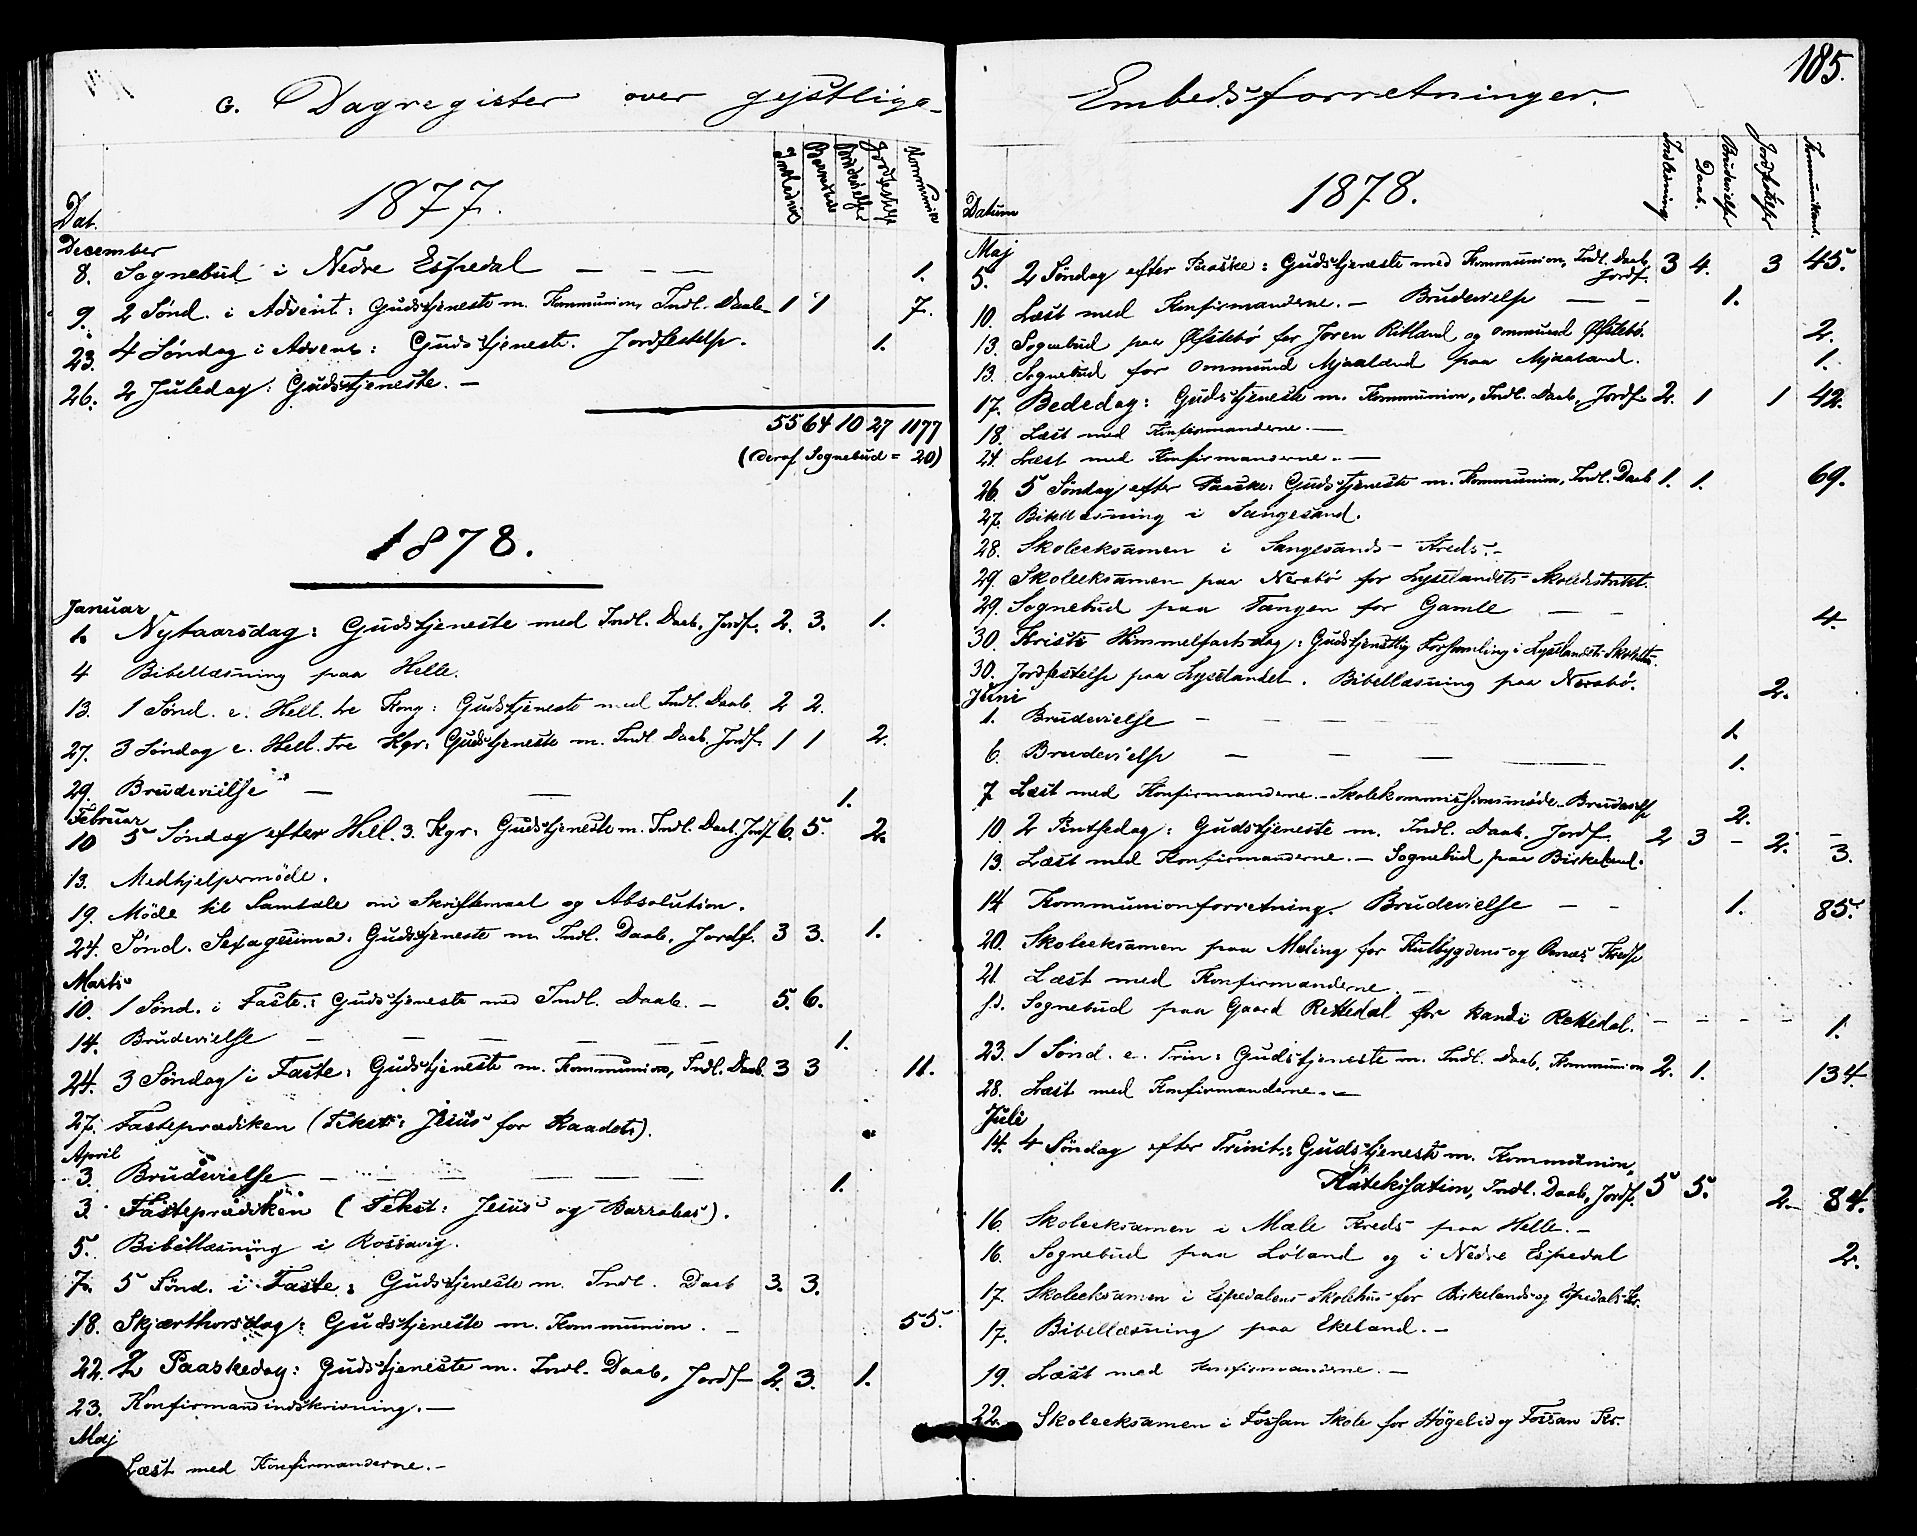 G. Dagregister over gejstlige-
1877.
Dat.
Indledning
Barnedaab
Brudevielser
Jordfestelse
Kommunion
December
8. Sognebud i Nedre Espedal — — — 1.
9. 2 Sönd. i Advent: Gudstjeneste m. Kommunion, Indl. Daab. 1 1 7.
23. 4 Söndag i Advent: Gudstjeneste. Jordfestelse. 1.
26. 2 Juledag: Gudstjeneste. —
55 64 10 27 1177
(Deraf Sognebud = 20)
1878.
Januar
1. Nytaarsdag: Gudstjeneste med Indl. Daab. Jordf. 2. 3. 1.
4 Bibellæsning paa Helle.
13. 1 Sönd. e. Hell. tre Kong: Gudstjeneste med Indl. Daab. 2 2.
27. 3 Söndag e. Hell. tre Kgr: Gudstjeneste m. Indl. Daab, Jordf. 1 1 2.
29. Brudevielse — — 1.
Februar
10 5 Söndag efter Hell. 3. Kgr: Gudstjeneste m. Indl. Daab. Jordf. 6. 5. 2.
13. Medhjelpermöde.
19. Möde til Samtale om Skriftemaal og Absolution.
24. Sönd. Sexagesima: Gudstjeneste m. Indl. Daab, Jordf. 3 3. 1.
Marts
10. 1 Sönd. i Faste: Gudstjeneste med Indl. Daab. — 5. 6.
14. Brudevielse — — — — — — 1.
24. 3 Söndag i Faste: Gudstjeneste m. Kommunion, Indl. Daab. 3 3 11.
27. Fasteprædiken (Tekst: Jesus for Raadet).
April
3. Brudevielse — — — — — — 1.
3. Fasteprædiken (Tekst: Jesus og Barrabas).
5. Bibellæsning i Rossavig.
7. 5 Sönd. i Faste: Gudstjeneste m. Indl. Daab 3. 3.
18. Skjærthorsdag: Gudstjeneste m. Kommunion. — 55.
22. 2 Paaskedag: Gudstjeneste m. Indl. Daab, Jordf. 2. 3. 1.
23. Konfirmandindskrivning. —
Maj
Læst med Konfirmanderne. —
185.
Embedsforretninger.
1878.
Datum
Indledning
Daab.
Brudevielse
Jordfestelse
Kommunikant.
Maj
5. 2 Söndag efter Paaske: Gudstjeneste med Kommunion, Indl. Daab, Jordf. 3 4. 3 45.
10. Læst med Konfirmanderne. — Brudevielse — — 1.
13. Sognebud paa Øfstebö for Joren Ritland og Ommund Øfstebö. 2.
13. Sognebud for Ommund Mjaaland paa Mjaaland. 1.
17. Bededag: Gudstjeneste m. Kommunion, Indl. Daab, Jordf. 2. 1 1 42.
18. Læst med Konfirmanderne. —
24. Læst med Konfirmanderne. —
26. 5 Söndag efter Paaske: Gudstjeneste m. Kommunion, Indl. Daab 1. 1. 69.
27. Bibellæsning i Sangesand.
28. Skoleeksamen i Sangesands-Kreds. —
29. Skoleeksamen paa Nerabö for Lyselandets-Skoledistrikt.
29. Sognebud paa Tangen for Gamle — — 4.
30. Kristi Himmelfartsdag: Gudstjenstlig Forsamling i Lyselandets Skolehus.
30. Jordfestelse paa Lyselandet. Bibellæsning paa Nerabö. 2.
Juni
1. Brudevielse — — — — 1.
6. Brudevielse — — — — 1.
7 Læst med Konfirmanderne. — Skolekommissionsmöde. Brudevielse 2.
10. 2 Pintsedag: Gudstjeneste m. Indl. Daab. Jordf. 2 3 — 2. —
13. Læst med Konfirmanderne. — Sognebud paa Birkeland. 3.
14 Kommunionforretning. Brudevielse — — 1. 85.
20. Skoleeksamen paa Meling for Kutbygdens- og Ornæs Kredse
21. Læst med Konfirmanderne. —
s.d. Sognebud paa Gaard Rettedal for kandi Rettedal. — — — — 1.
23. 1 Sönd. e. Trin: Gudstjeneste m. Indl. Daab, Kommunion 2. 1. 134.
28. Læst med Konfirmanderne. —
Juli
14. 4 Söndag efter Trinit.: Gudstjeneste m. Kommunion,
Katekisation, Indl. Daab, Jordf. 5 5. 2. 84.
16. Skoleeksamen i Mæle Kreds paa Helle. —
16. Sognebud paa Löland og i Nedre Espedal 2.
17. Skoleeksamen i Espedalens Skolehus for Birkelands- og Espedals Kr.
17. Bibellæsning paa Ekeland. —
19. Læst med Konfirmanderne. —
22. Skoleeksamen i Fossan Skole for Högelid og Fossan Kr.